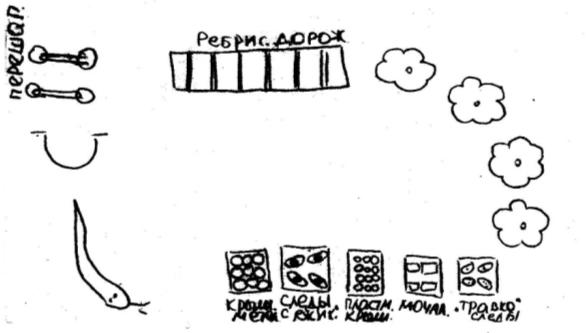 ПЕРЕШАГ.
Ребрис. ДОРОЖ
КРЫШ.
СЛЕДЫ.
С ЁЖИК.
ПЛАСТМ.
КРЫШ.
МОЧАЛ.
"ТРАВКА"
СЛЕДЫ